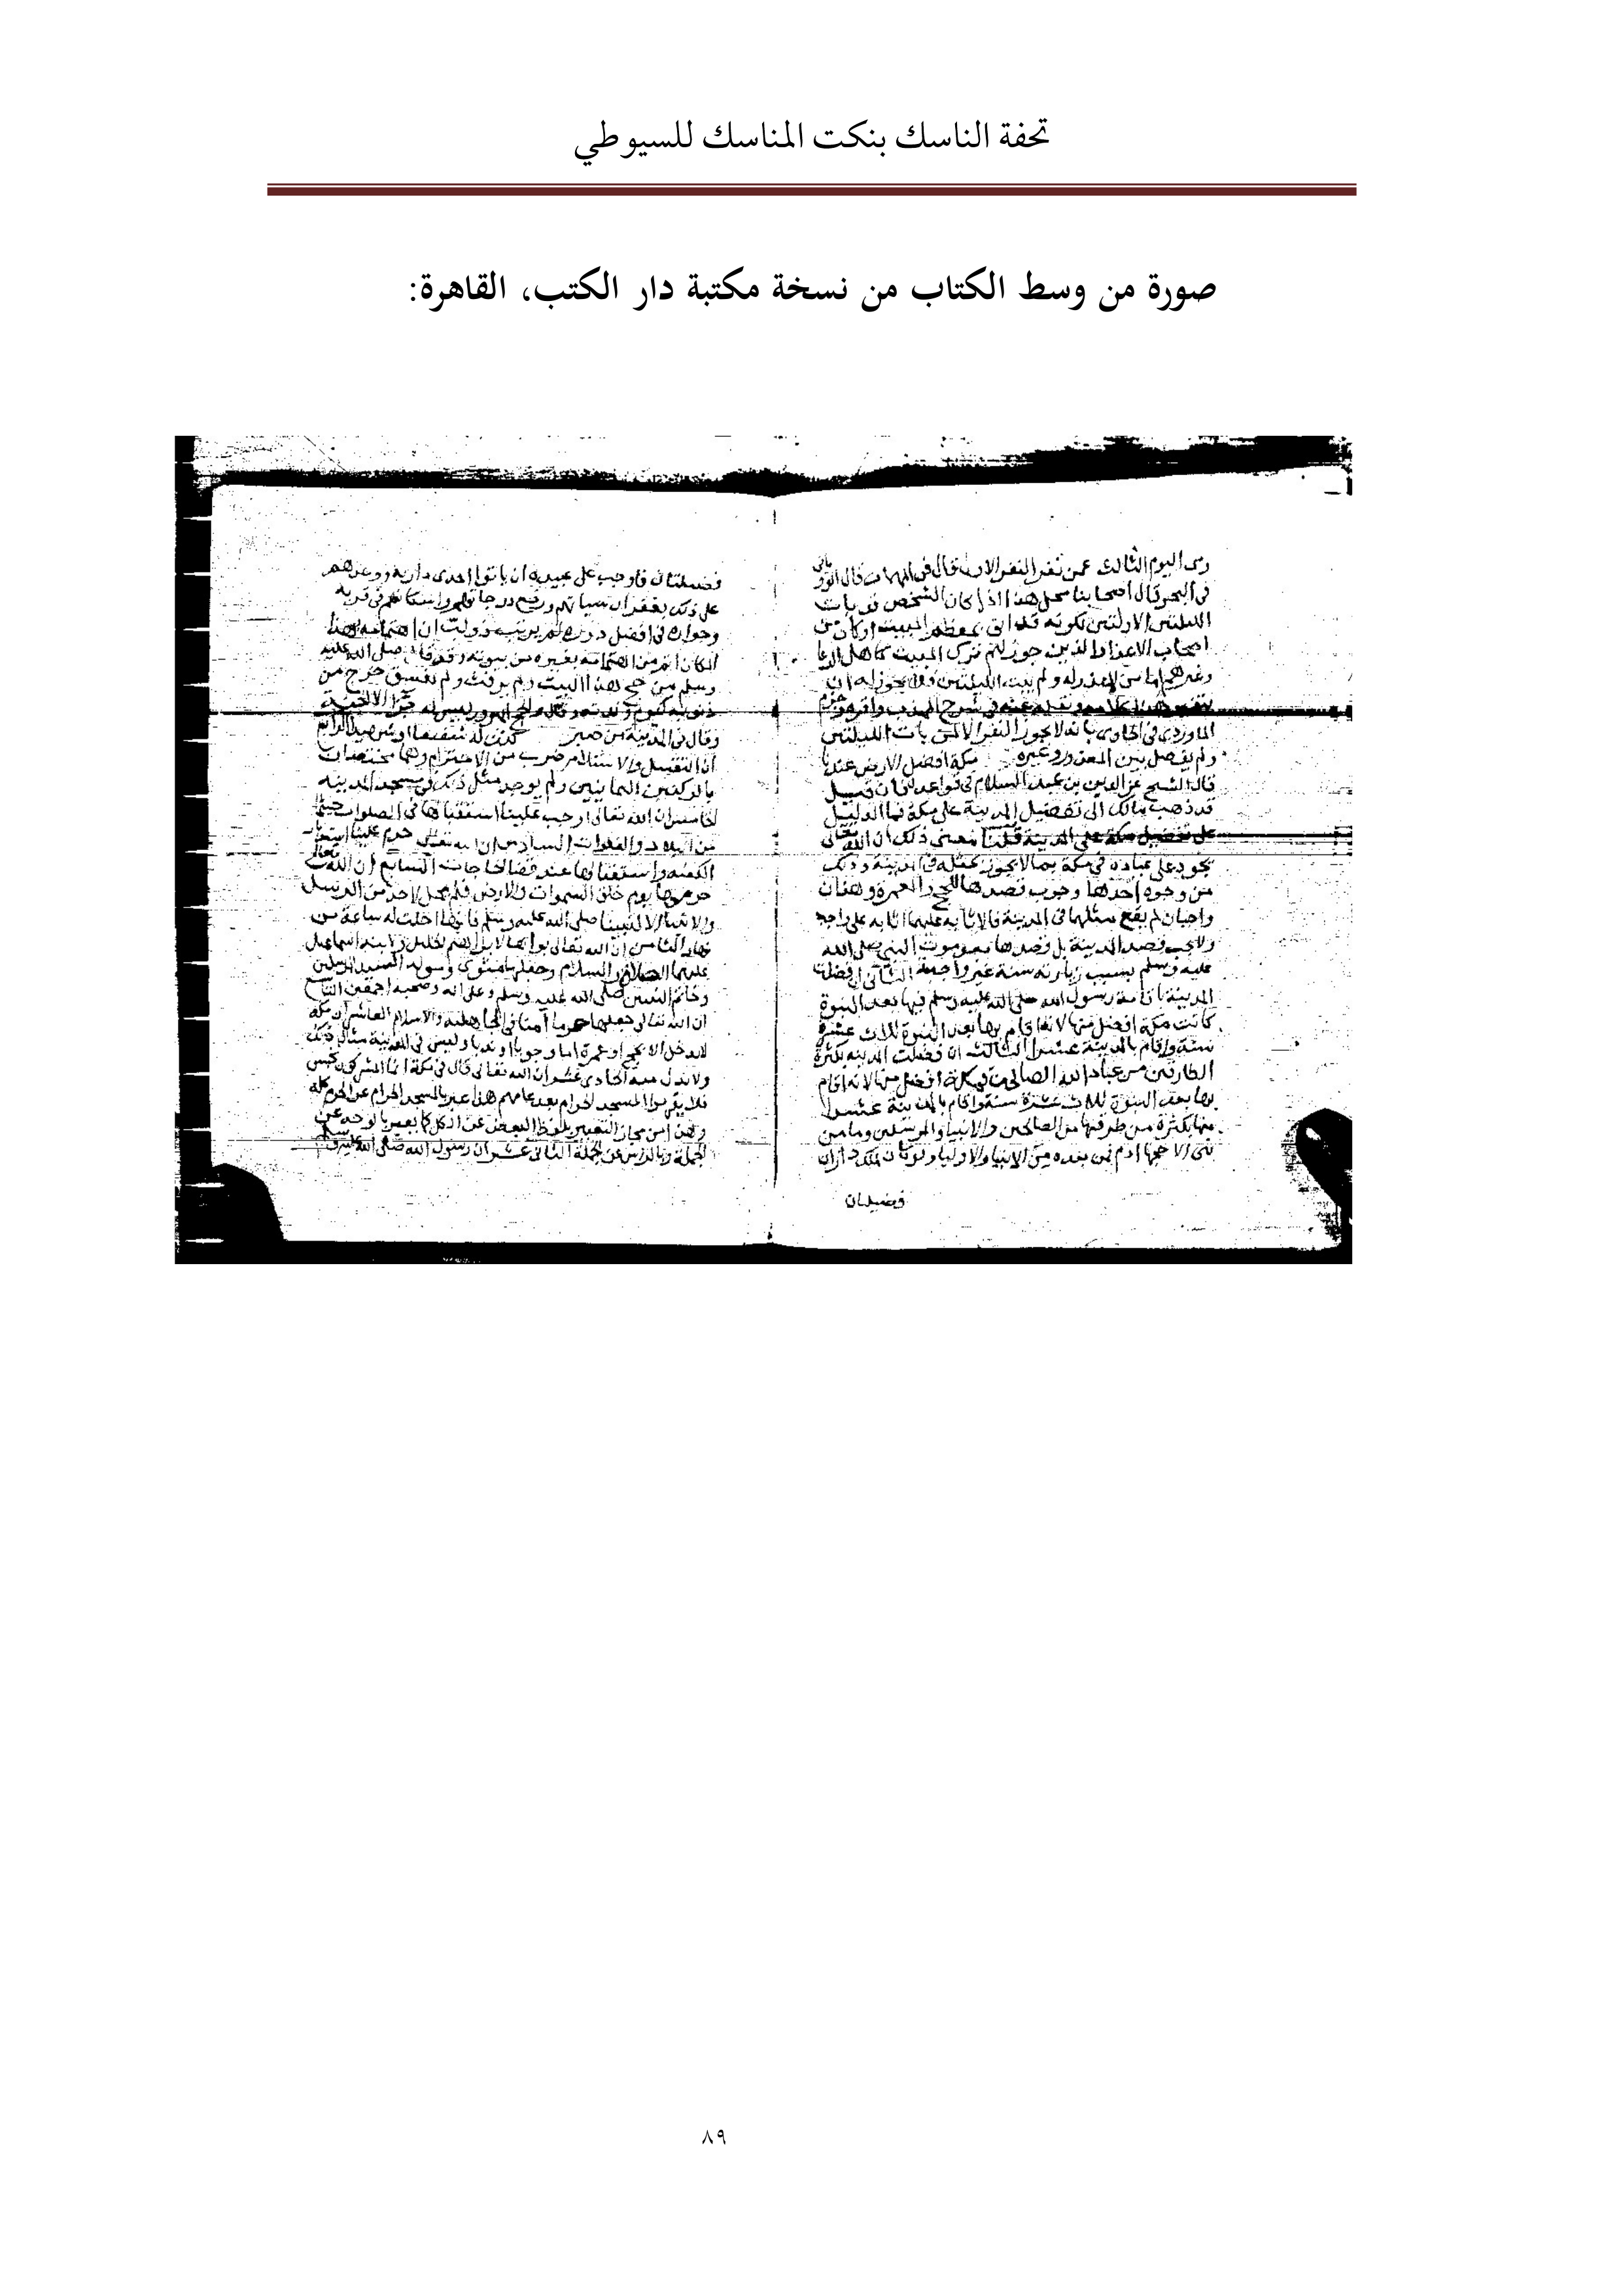 تحفة الناسك بنكت المناسك للسيوطي
صورة من وسط الكتاب من نسخة مكتبة دار الكتب، القاهرة:
رمى اليوم الثالث عمن نفر النفر الاول قال في المهمات قال
في البحر قال اصحابنا محل هذا اذا كان الشخص قد بات
الليلتين الاولتين لكونه قد اتى بمعظم المبيت او كان من
اصحاب الاعذار الذين جوز لهم ترك المبيت كاهل
وغيرهم اما من لا عذر له ولم يبت الليلتين فلا يجوز له ان
الماوردي في الحاوي بانه لا يجوز النفر الا لمن بات الليلتين
ولم يفصل بين المعذور وغيره مكة افضل الارض عندنا
قال الشيخ عز الدين بن عبد السلام في قواعده فان قيل
قد ذهب مالك الى تفضيل المدينة على مكة فما الدليل
على تفضيل مكة على المدينة قلنا معنى ذلك ان الله تعالى
يجود على عباده في مكة بما لا يجوز بمثله في المدينة وذلك
من وجوه احدها وجوب قصدها للحج والعمرة وهذان
واجبان لم يقع مثلهما في المدينة فالاثابة عليهما اثابة على واجب
ولا يجب قصد المدينة بل قصدها بعد موت النبي صلى الله
عليه وسلم بسبب زيارته سنة غير واجبة الثاني ان فضلت
المدينة باقامة رسول الله صلى الله عليه وسلم فيها بعد النبوة
كانت مكة افضل منها لانه اقام بها بعد النبوة ثلاث عشرة
سنة واقام بالمدينة عشرا الثالث ان فضلت المدينة بكثرة
الطارقين من عباد الله الصالحين فمكة افضل منها لانه اقام
بها بعد النبوة ثلاث عشرة سنة واقام بالمدينة عشرا
منها بكثرة من طرقها من الصالحين والانبيا والمرسلين وما من
نبي الا حجها ادم فمن بعده من الانبيا والاوليا ولو كان لملك داران
فضيلتان
فضيلتان فاوجب على عبيده ان ياتوا احدى داريه ووعدهم
على ذلك بغفران سياتهم ورفع درجاتهم واسكانهم في قربه
وجواره في افضل دوره لم يرتب ذو لب ان اهتمامه بهذا
المكان اتم من اهتمامه بغيره من بيوته وقد قال صلى الله عليه
وسلم من حج هذا البيت ولم يرفث ولم يفسق خرج من
ذنوبه كيوم ولدته وقال والحج المبرور ليس له جزا الا الجنة
وقال في المدينة من صبر كنت له شفيعا او شهيدا الرابع
ان التقبيل والاستلام ضرب من الاحترام وهما مختصان
بالركنين اليمانيين ولم يوجد مثل ذلك في مسجد المدينة
الخامس ان الله تعالى اوجب علينا استقبالها في الصلوات حيثما
من البلاد والفلوات السادس ان الله تعالى حرم علينا
الكعبة واستقبالها عند قضا الحاجات السابع ان الله تعالى
حرمها يوم خلق السموات والارض فلم تحل لاحد من الرسل
والانبيا الا لنبينا صلى الله عليه وسلم فانها احلت له ساعة من
نهار الثامن ان الله تعالى بواها لابراهيم الخليل ولابنه اسماعيل
عليهما الصلاة والسلام وجعلها مثوى ومولد لسيد المرسلين
وخاتم النبيين صلى الله عليه وسلم وعلى اله وصحبه اجمعين التاسع
ان الله تعالى جعلها حرما آمنا في الجاهلية والاسلام العاشر ان مكة
لا تدخل الا بحج او عمرة اما وجوبا او ندبا وليس في المدينة مثل ذلك
ولا بدل منه الحادي عشر ان الله تعالى قال في مكة انما المشركون نجس
فلا يقربوا المسجد الحرام بعد عامهم هذا عبر بالمسجد الحرام عن الحرم كله
وهذا من مجاز التعبير بلفظ البعض عن الكل كما يعبر بالوجه عن
الجملة وبالراس عن الجملة الثاني عشر ان رسول الله صلى الله عليه وسلم
٨٩